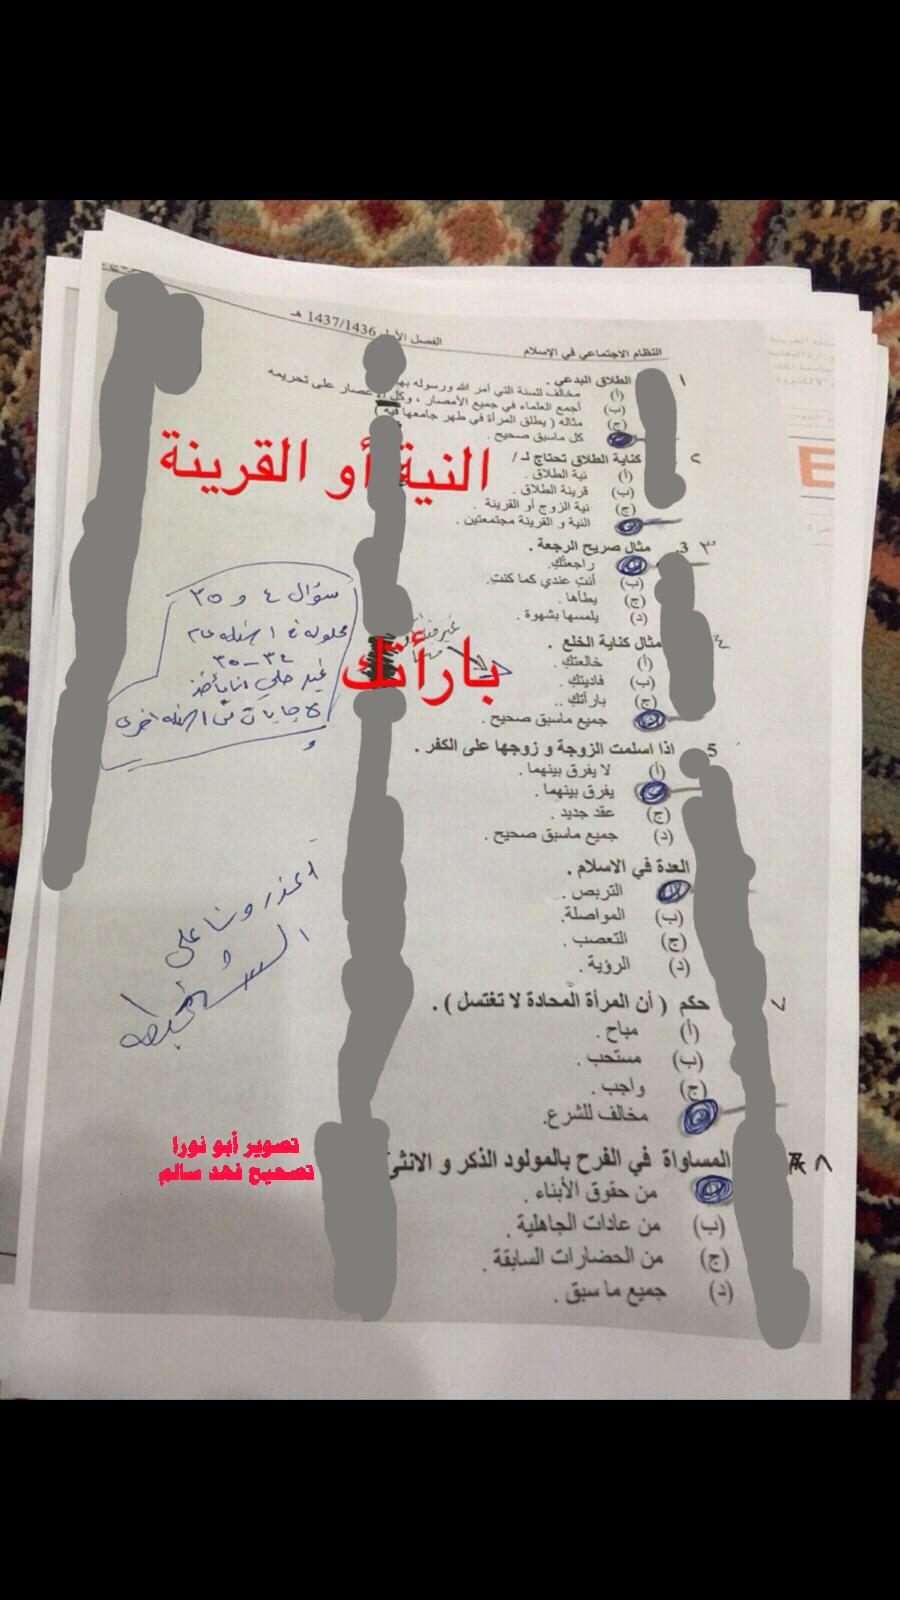 النظام الاجتماعي في الإسلام
الفصل الأول 1437/1436 هـ
١ الطلاق البدعي .
(أ) مخالف للسنة التي أمر الله ورسوله بها
(ب) أجمع العلماء في جميع الأمصار ، وكل الاعصار على تحريمه
(ج) مثاله ( يطلق المرأة في طهر جامعها فيه )
كل ماسبق صحيح .
٢ كناية الطلاق تحتاج لـ /
(أ) نية الطلاق .
(ب) قرينة الطلاق .
(ج) نية الزوج أو القرينة .
النية و القرينة مجتمعتين .
النية أو القرينة
٣ 3. مثال صريح الرجعة .
راجعتك.
(ب) أنتِ عندي كما كنتِ.
(ج) يطأها .
(د) يلمسها بشهوة .
٤ مثال كناية الخلع .
(أ) خالعتكِ .
(ب) فاديتكِ .
(ج) بارأتكِ ..
جميع ماسبق صحيح .
بارأتك
5 اذا اسلمت الزوجة و زوجها على الكفر .
(أ) لا يفرق بينهما .
يفرق بينهما .
(ج) عقد جديد .
(د) جميع ماسبق صحيح .
العدة في الاسلام .
التربص .
(ب) المواصلة.
(ج) التعصب .
(د) الرؤية .
٧ حكم ( أن المرأة المحادة لا تغتسل ) .
(أ) مباح .
(ب) مستحب .
(ج) واجب .
مخالف للشرع.
٨ المساواة في الفرح بالمولود الذكر و الانثى
من حقوق الأبناء .
(ب) من عادات الجاهلية .
(ج) من الحضارات السابقة .
(د) جميع ما سبق .
سؤال ٤ و ٣٥
محلوله في اسئله عام
٣٤-٣٥
غير حلي انا بأخذ
الاجابات من اسئله اخرى
أعذرونا على
الشخبطه
تصوير أبو نورا
تصحيح فهد سالم